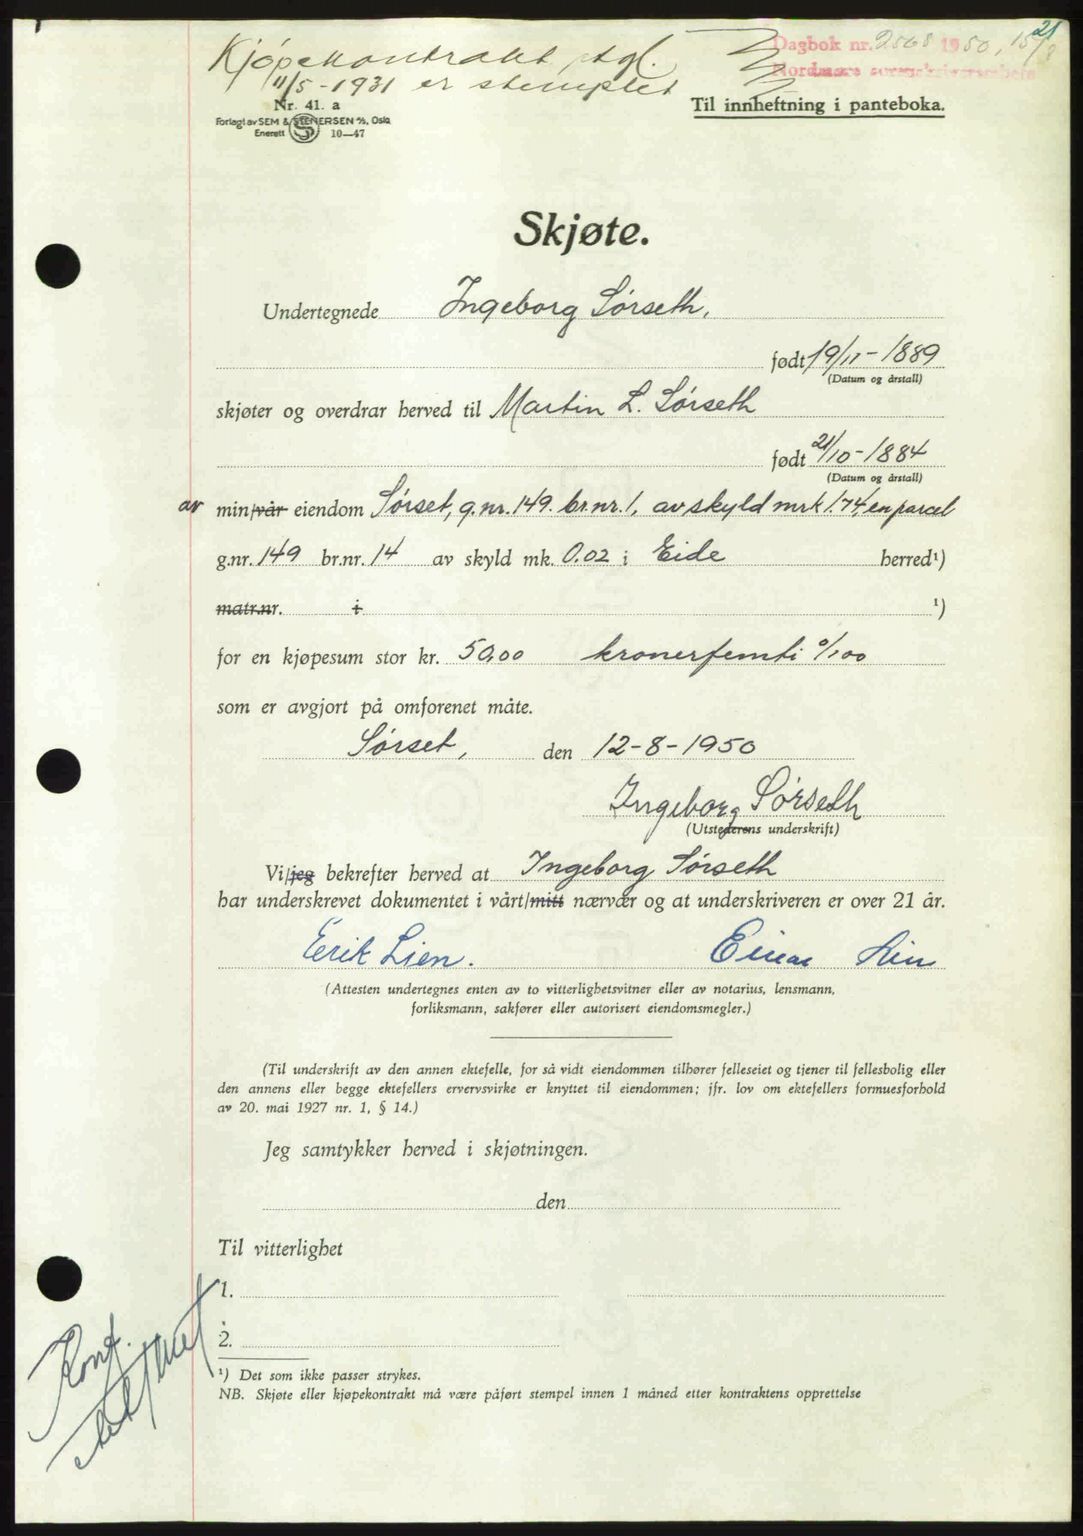 21
Dagbok nr. 2568 1950, 15/8
Nordmøre sorenskriverembete
Kjøpekontrakt dgl.
11/5 - 1931 er stemplet
Nr. 41. a
Forlagt av SEM & STENERSEN A/S, Oslo
Enerett 10—47
Til innheftning i panteboka.
Skjøte.
Undertegnede Ingeborg Sørseth,
født 19/11 - 1889
(Datum og årstall)
skjøter og overdrar herved til Martin L. Sørseth
født 21/10 - 1884
(Datum og årstall)
av min/vår eiendom Sørset, g.nr. 149. br.nr. 1, av skyld mrk 1.74, en parcel
g.nr. 149 br.nr. 14 av skyld mk. 0.02 i Eide herred¹)
matr.nr. i ¹)
for en kjøpesum stor kr. 50,00 kronerfemti 0/100
som er avgjort på omforenet måte.
Sørset, den 12-8-1950
Ingeborg Sørseth
(Utstederens underskrift)
Vi/jeg bekrefter herved at Ingeborg Sørseth
har underskrevet dokumentet i vårt/mitt nærvær og at underskriveren er over 21 år.
Erik Lien. Einar Lien
(Attesten undertegnes enten av to vitterlighetsvitner eller av notarius, lensmann,
forliksmann, sakfører eller autorisert eiendomsmegler.)
(Til underskrift av den annen ektefelle, for så vidt eiendommen tilhører felleseiet og tjener til fellesbolig eller
den annens eller begge ektefellers ervervsvirke er knyttet til eiendommen; jfr. lov om ektefellers formuesforhold
av 20. mai 1927 nr. 1, § 14.)
Jeg samtykker herved i skjøtningen.
den
Til vitterlighet
1.
2.
¹) Det som ikke passer strykes.
NB. Skjøte eller kjøpekontrakt må være påført stempel innen 1 måned etter kontraktens opprettelse
Konf.